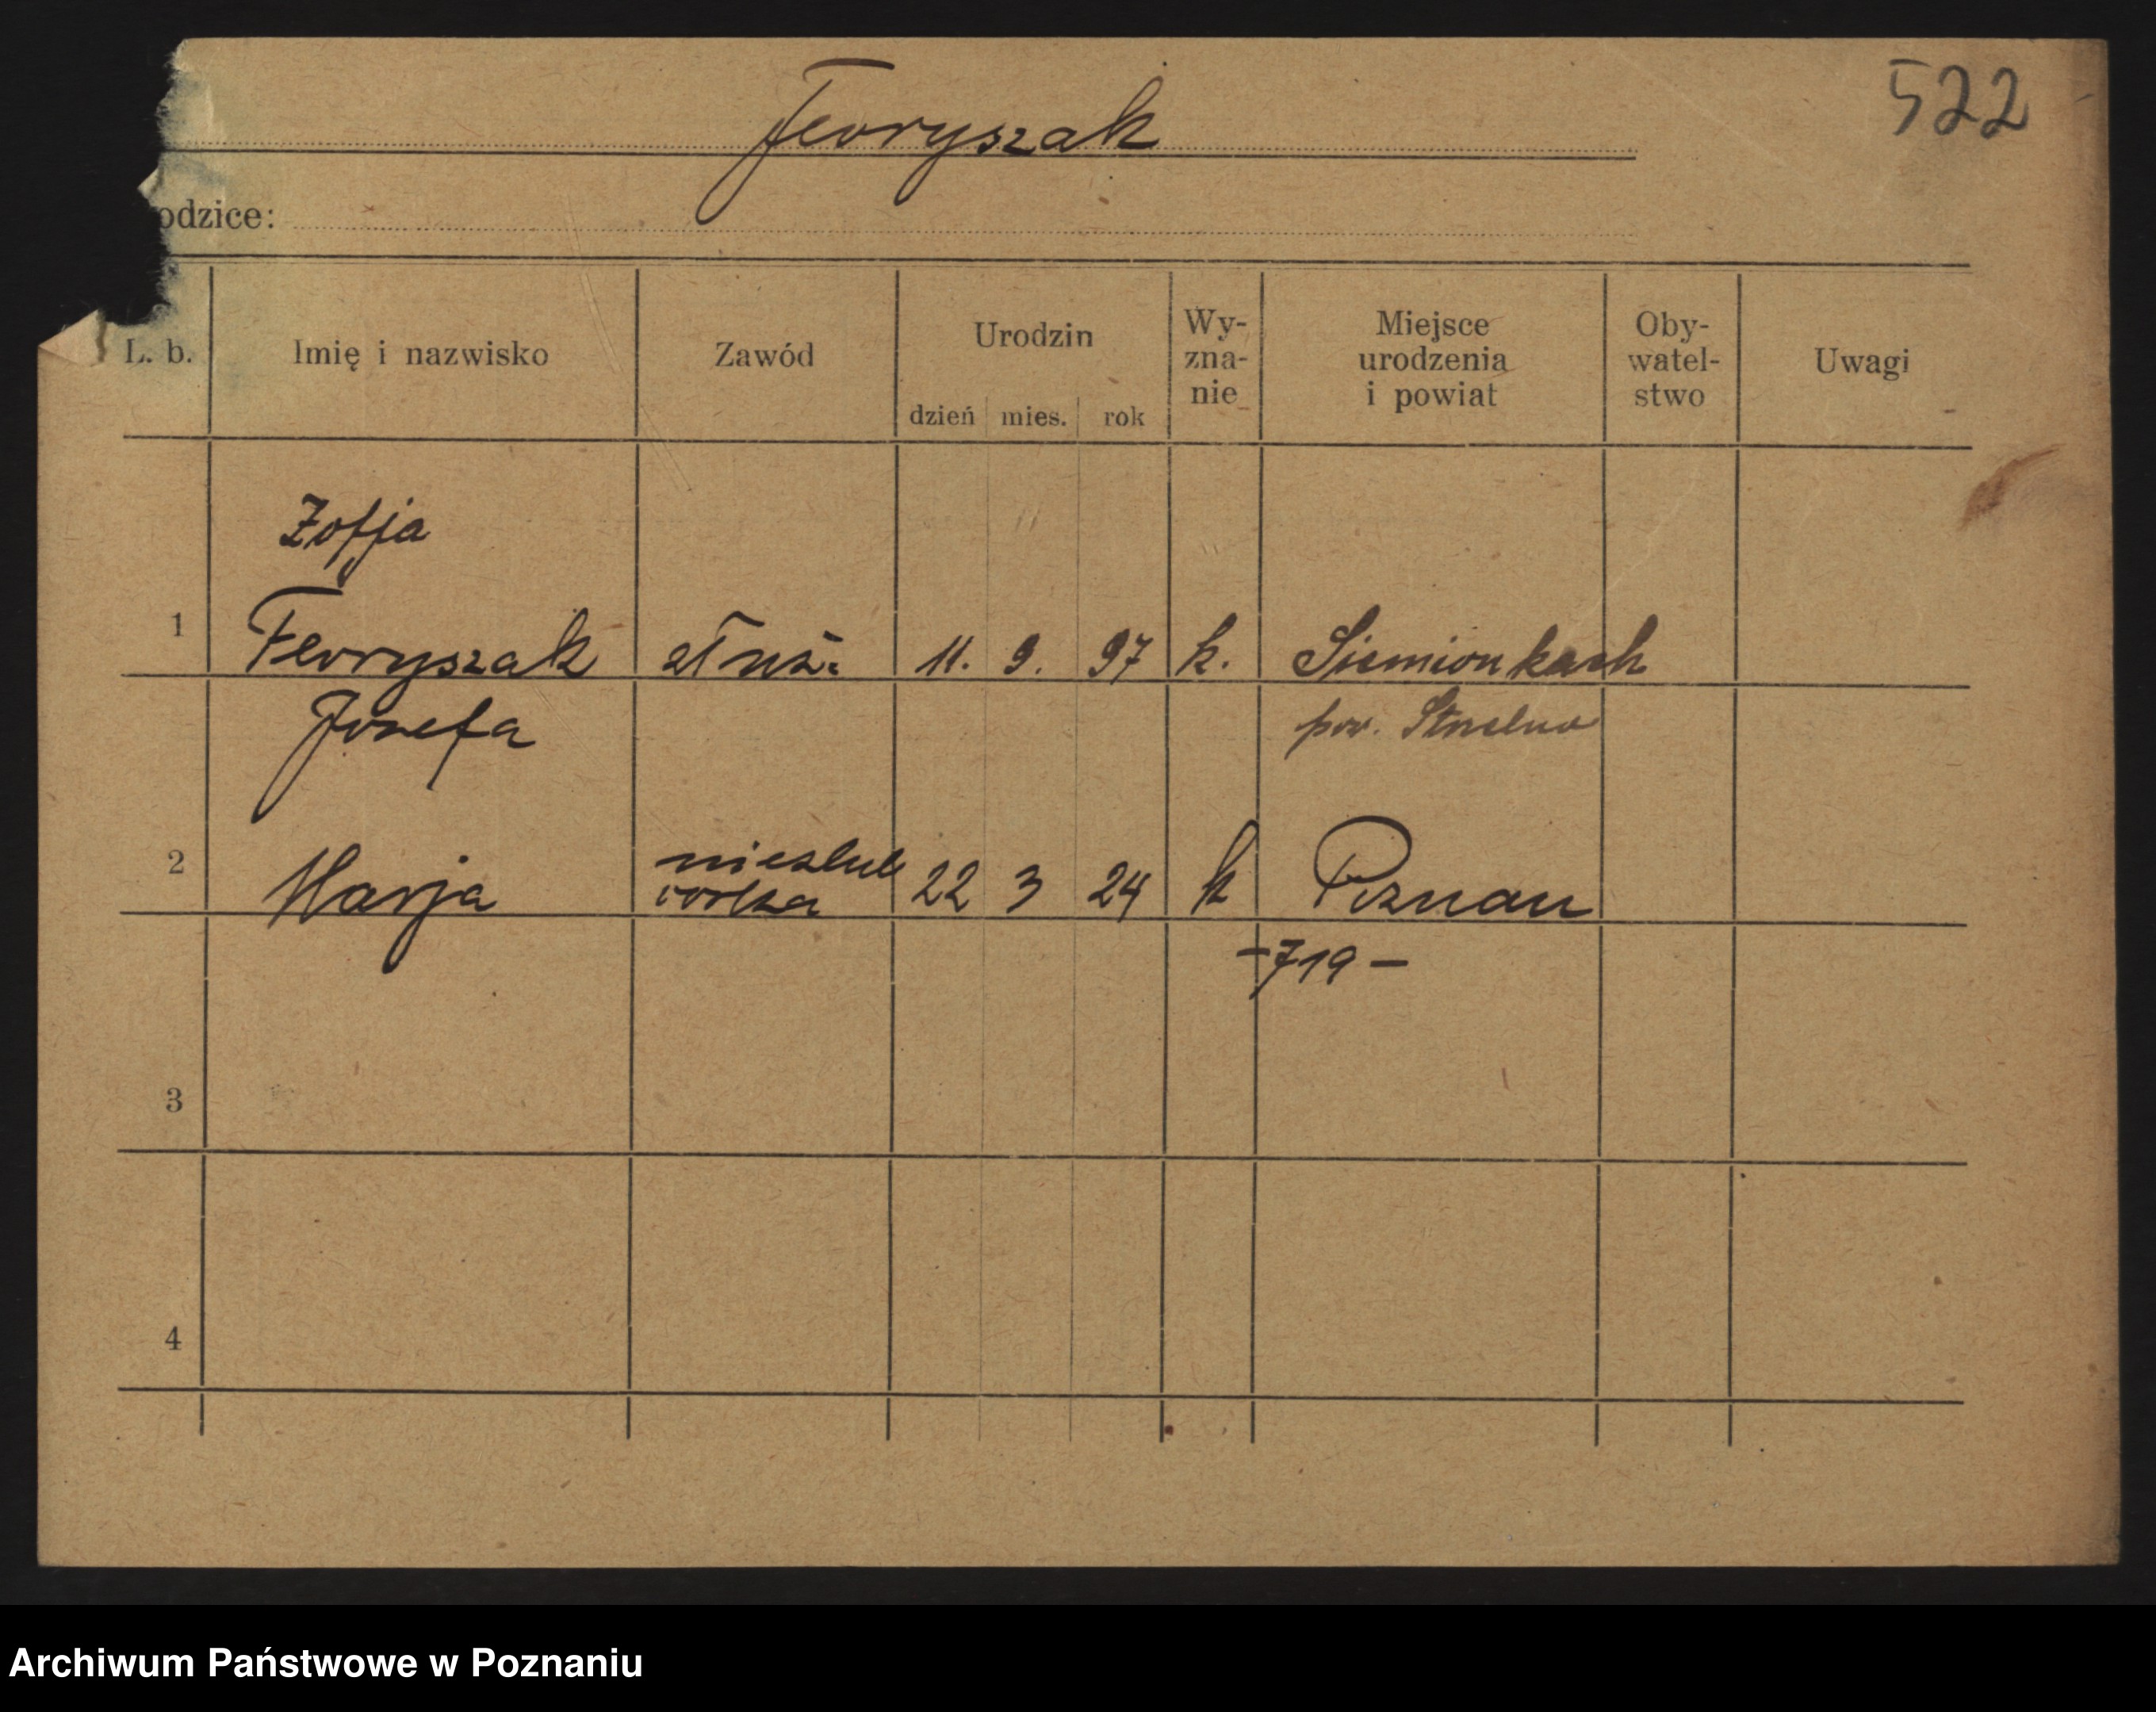 522
Fevryszak
odzice:
L. b. Imię i nazwisko Zawód Urodzin dzień mies. rok Wy-zna-nie Miejsce urodzenia i powiat Oby-watel-stwo Uwagi
Zofja
1 Fevryszak służ. 11. 9. 97 k. Siemionkach
Józefa pow. Strzelno
nieslub
2 Marja córka 22 3 24 k Poznan
-719-
3
4
Archiwum Państwowe w Poznaniu